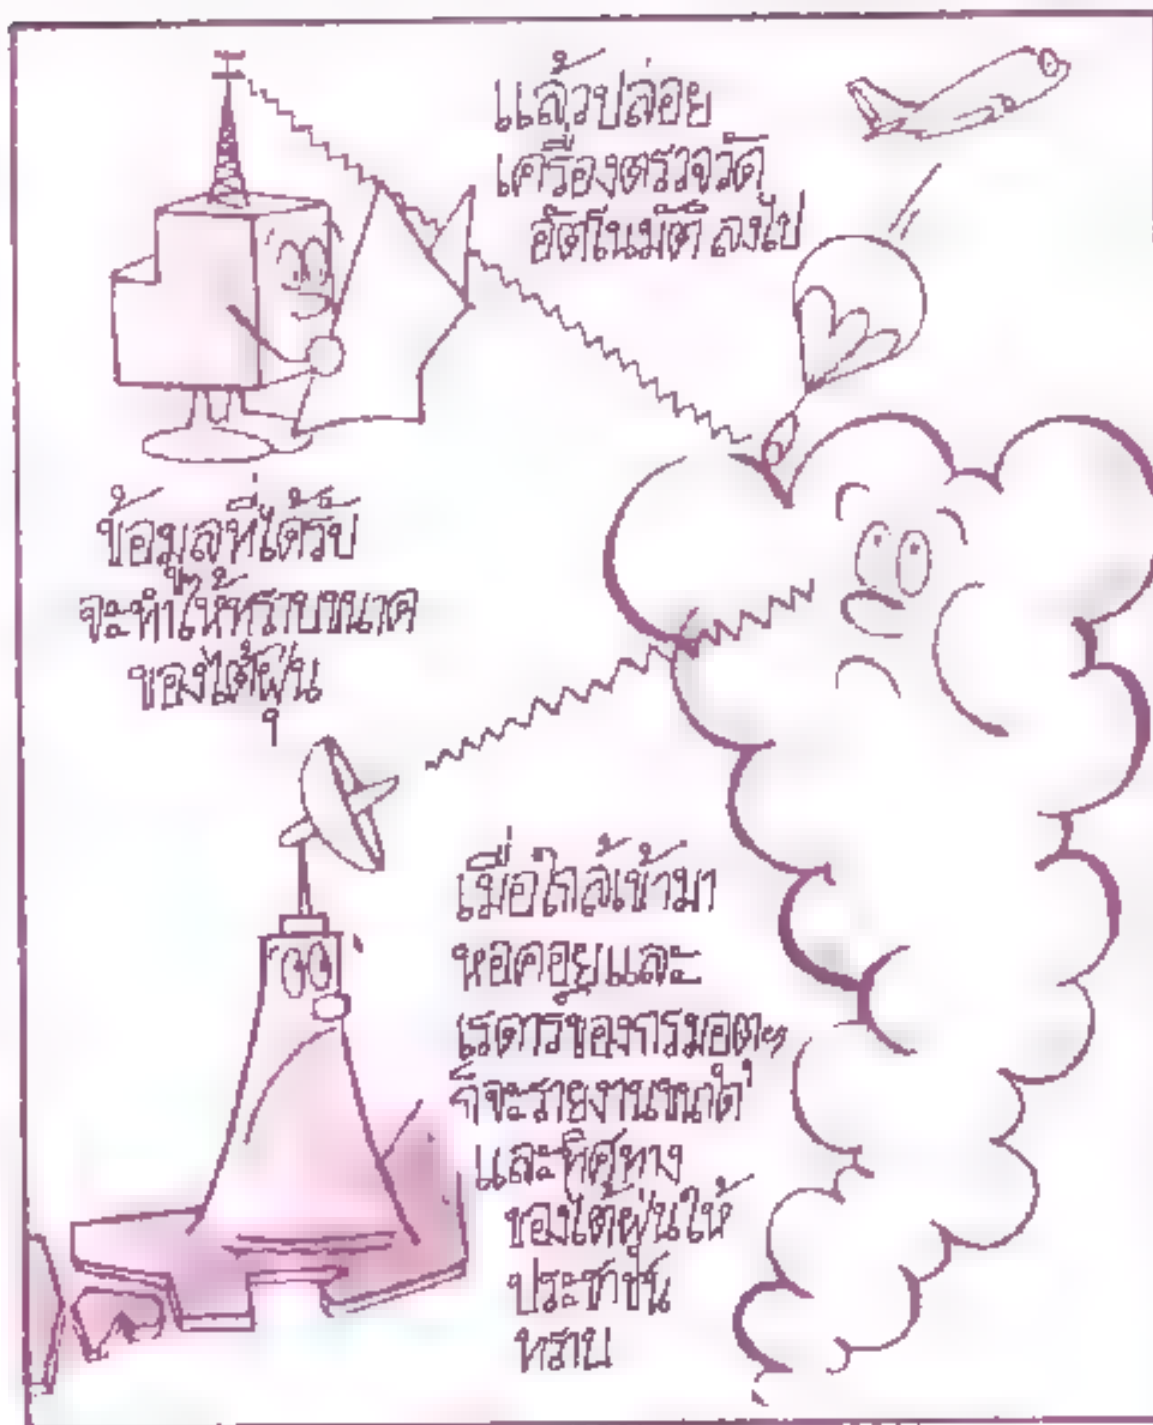 แล้วปล่อย
เครื่องตรวจวัด
อัตโนมัติ ลงไป
ข้อมูลที่ได้รับ
จะทำให้ทราบขนาด
ของไต้ฝุ่น
เมื่อใกล้เข้ามา
หอคอยและ
เรดาร์ของกรมอุตุฯ
ก็จะรายงานขนาด
และทิศทาง
ของไต้ฝุ่นให้
ประชาชน
ทราบ